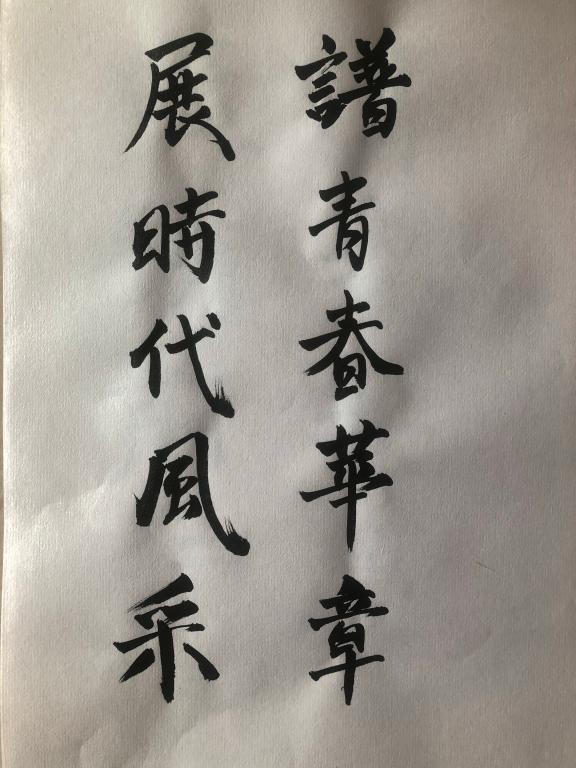 譜青春華章
展時代風采